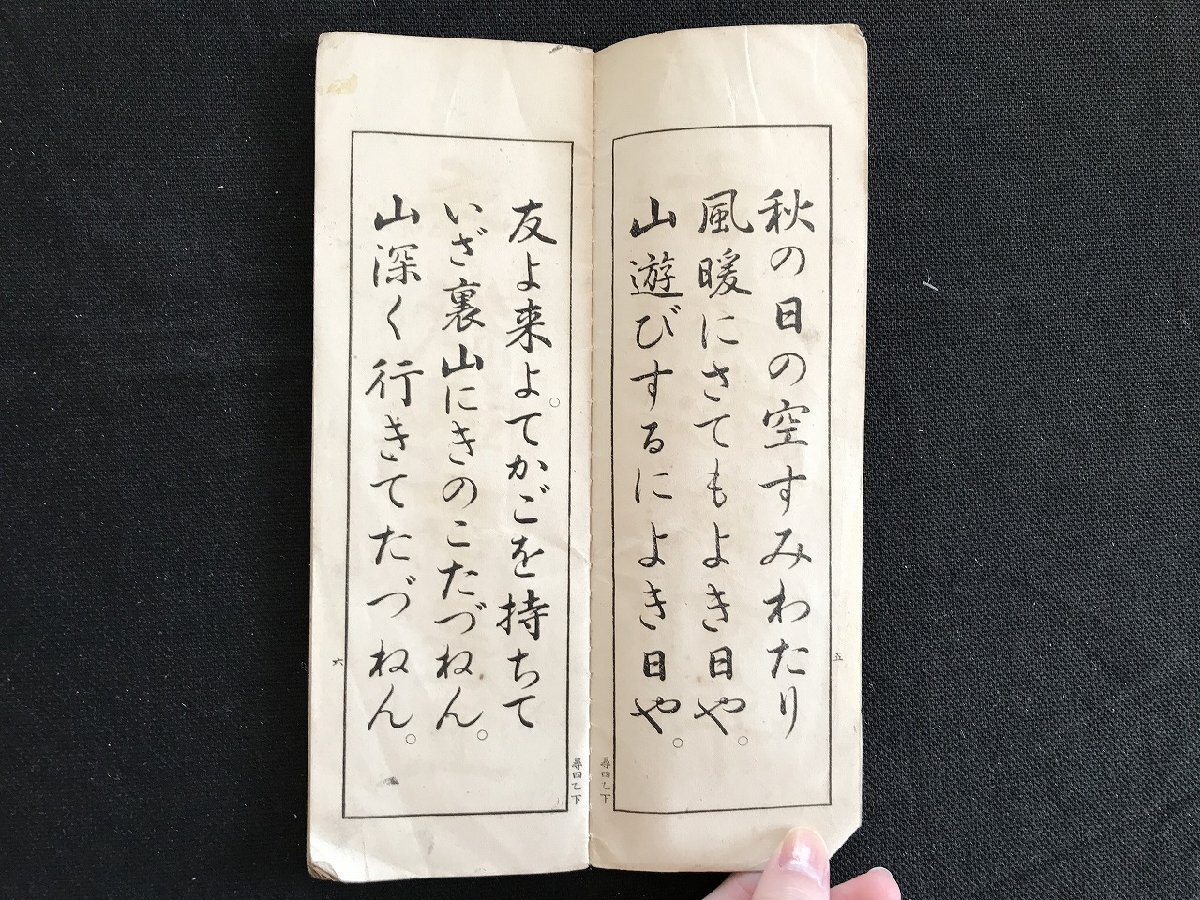 秋の日の空すみわたり
風暖にさてもよき日や。
山遊びするによき日や。
五
尋四乙下
友よ来よ。てかごを持ちて
いざ裏山にきのこたづねん。
山深く行きてたづねん。
六
尋四乙下